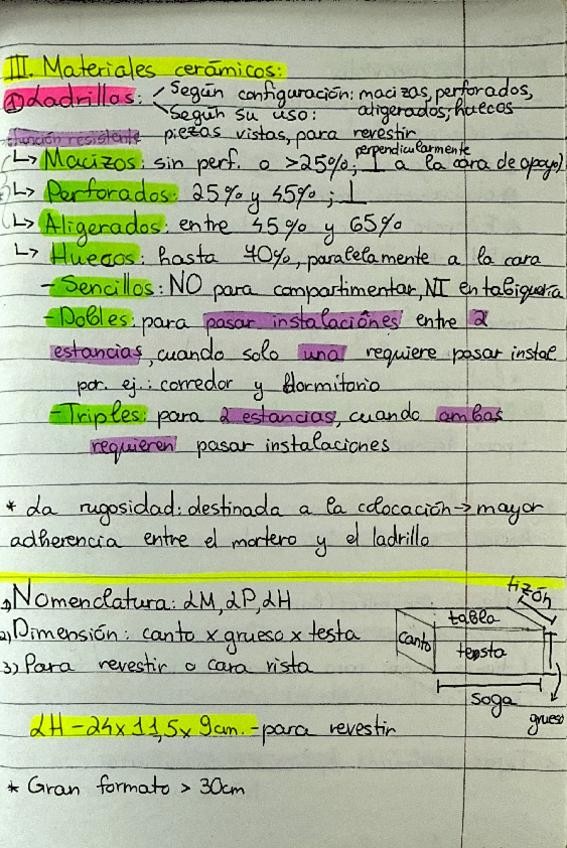 III. Materiales cerámicos:
1) Ladrillos: Según configuración: macizas, perforados,
Según su uso: aligerados, huecos
función resistente piezas vistas, para revestir
perpendicularmente
↳ Macizos: sin perf. o >25%; ⊥ a la cara de apoyo)
↳ Perforados: 25% y 45%; ⊥
↳ Aligerados: entre 45% y 65%
↳ Huecos: hasta 70%, paralelamente a la cara
- Sencillos: NO para compartimentar, NI en tabiquería
- Dobles: para pasar instalaciones entre 2
estancias, cuando solo una requiere pasar instal
por. ej.: corredor y dormitorio
- Triples: para 2 estancias, cuando ambas
requieren pasar instalaciones
* La rugosidad: destinada a la colocación → mayor
adherencia entre el mortero y el ladrillo
1) Nomenclatura: LM, LP, LH
2) Dimensión: canto x grueso x testa
3) Para revestir o cara vista
tizón
tabla
canto
testa
soga
grueso
LH - 24 x 11,5 x 9cm. - para revestir
* Gran formato > 30cm